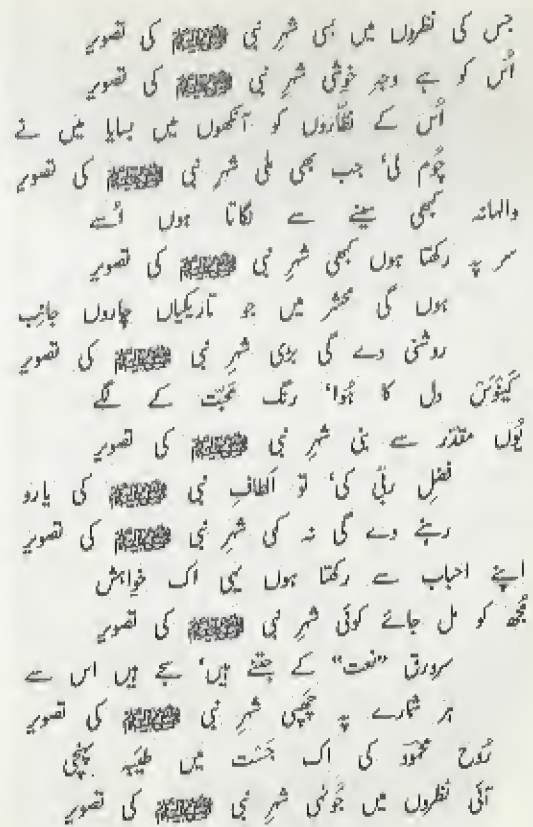 جس کی نظروں میں بسی شہرِ نبی ﷺ کی تصویر
اُس کو ہے وجہِ خوشی شہرِ نبی ﷺ کی تصویر
اُس کے نظّاروں کو آنکھوں میں بسایا میں نے
چُوم لی، جب بھی ملی شہرِ نبی ﷺ کی تصویر
والہانہ کبھی سینے سے لگاتا ہوں اُسے
سر پہ رکھتا ہوں کبھی شہرِ نبی ﷺ کی تصویر
ہوں گی محشر میں جو تاریکیاں چاروں جانِب
روشنی دے گی بڑی شہرِ نبی ﷺ کی تصویر
کینوَس دل کا ہُوا، رنگ محبّت کے لگے
یُوں مقدّر سے بنی شہرِ نبی ﷺ کی تصویر
فضلِ ربّی کی، تو الطافِ نبی ﷺ کی یارو
رہنے دے گی نہ کمی شہرِ نبی ﷺ کی تصویر
اپنے احباب سے رکھتا ہوں یہی اک خواہش
مُجھ کو مل جائے کوئی شہرِ نبی ﷺ کی تصویر
سرورق "نعت" کے جتنے ہیں، سجے ہیں اس سے
ہر شمارے پہ چَھپی شہرِ نبی ﷺ کی تصویر
رُوحِ محمودؔ کی اک جَست میں طیبہ پہنچی
آئی نظروں میں جُونہی شہرِ نبی ﷺ کی تصویر